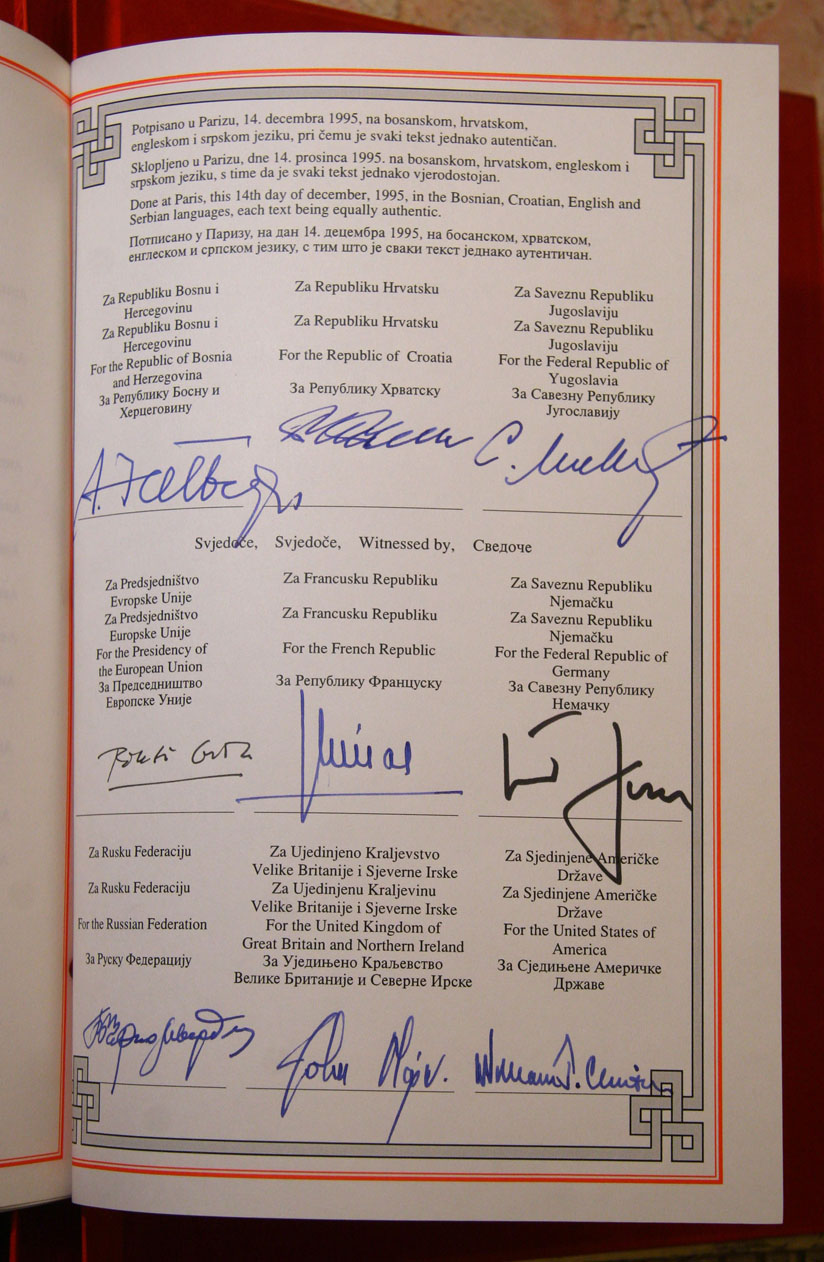 Potpisano u Parizu, 14. decembra 1995, na bosanskom, hrvatskom,
engleskom i srpskom jeziku, pri čemu je svaki tekst jednako autentičan.
Sklopljeno u Parizu, dne 14. prosinca 1995. na bosanskom, hrvatskom, engleskom i
srpskom jeziku, s time da je svaki tekst jednako vjerodostojan.
Done at Paris, this 14th day of december, 1995, in the Bosnian, Croatian, English and
Serbian languages, each text being equally authentic.
Потписано у Паризу, на дан 14. децембра 1995, на босанском, хрватском,
енглеском и српском језику, с тим што је сваки текст једнако аутентичан.
Za Republiku Bosnu i
Hercegovinu
Za Republiku Bosnu i
Hercegovinu
For the Republic of Bosnia
and Herzegovina
За Републику Босну и
Херцеговину
Za Republiku Hrvatsku
Za Republiku Hrvatsku
For the Republic of Croatia
За Републику Хрватску
Za Saveznu Republiku
Jugoslaviju
Za Saveznu Republiku
Jugoslaviju
For the Federal Republic of
Yugoslavia
За Савезну Републику
Југославију
Svjedoče, Svjedoče, Witnessed by, Сведоче
Za Predsjedništvo
Evropske Unije
Za Predsjedništvo
Europske Unije
For the Presidency of
the European Union
За Председништво
Европске Уније
Za Francusku Republiku
Za Francusku Republiku
For the French Republic
За Републику Француску
Za Saveznu Republiku
Njemačku
Za Saveznu Republiku
Njemačku
For the Federal Republic of
Germany
За Савезну Републику
Немачку
Za Rusku Federaciju
Za Rusku Federaciju
For the Russian Federation
За Руску Федерацију
Za Ujedinjeno Kraljevstvo
Velike Britanije i Sjeverne Irske
Za Ujedinjenu Kraljevinu
Velike Britanije i Sjeverne Irske
For the United Kingdom of
Great Britain and Northern Ireland
За Уједињено Краљевство
Велике Британије и Северне Ирске
John Major
Za Sjedinjene Američke
Države
Za Sjedinjene Američke
Države
For the United States of
America
За Сједињене Америчке
Државе
William J. Clinton